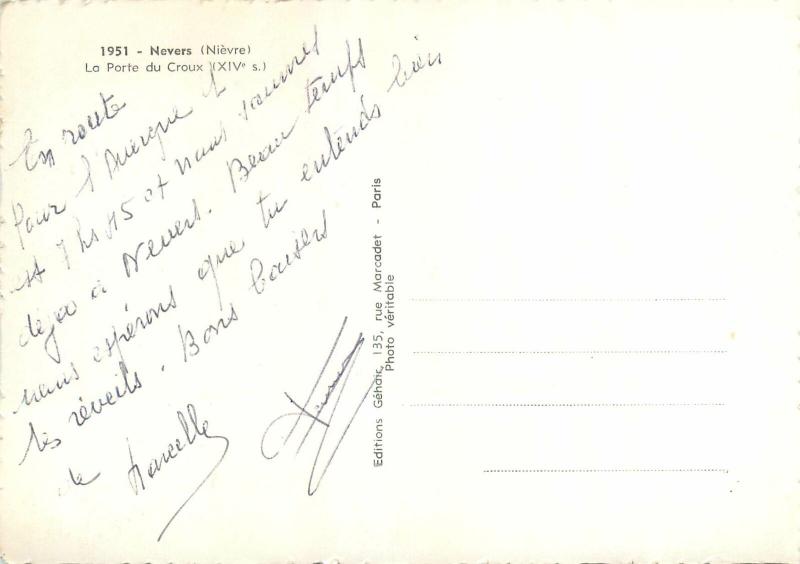 1951 - Nevers (Nièvre)
La Porte du Croux (XIVe s.)
En route
pour l'Auvergne il
est 7 hs 15 et nous sommes
déjà à Nevers. Beau temps
nous espérons que tu entends bien
les réveils. Bons baisers
de Marcelle
Editions Géhaic, 135, rue Marcadet - Paris
Photo véritable